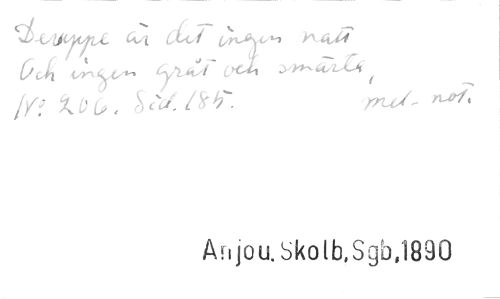 Deruppe är det ingen natt
Och ingen gråt och smärta,
No 206. Sid. 185. mel. not.
Anjou. Skolb. Sgb, 1890